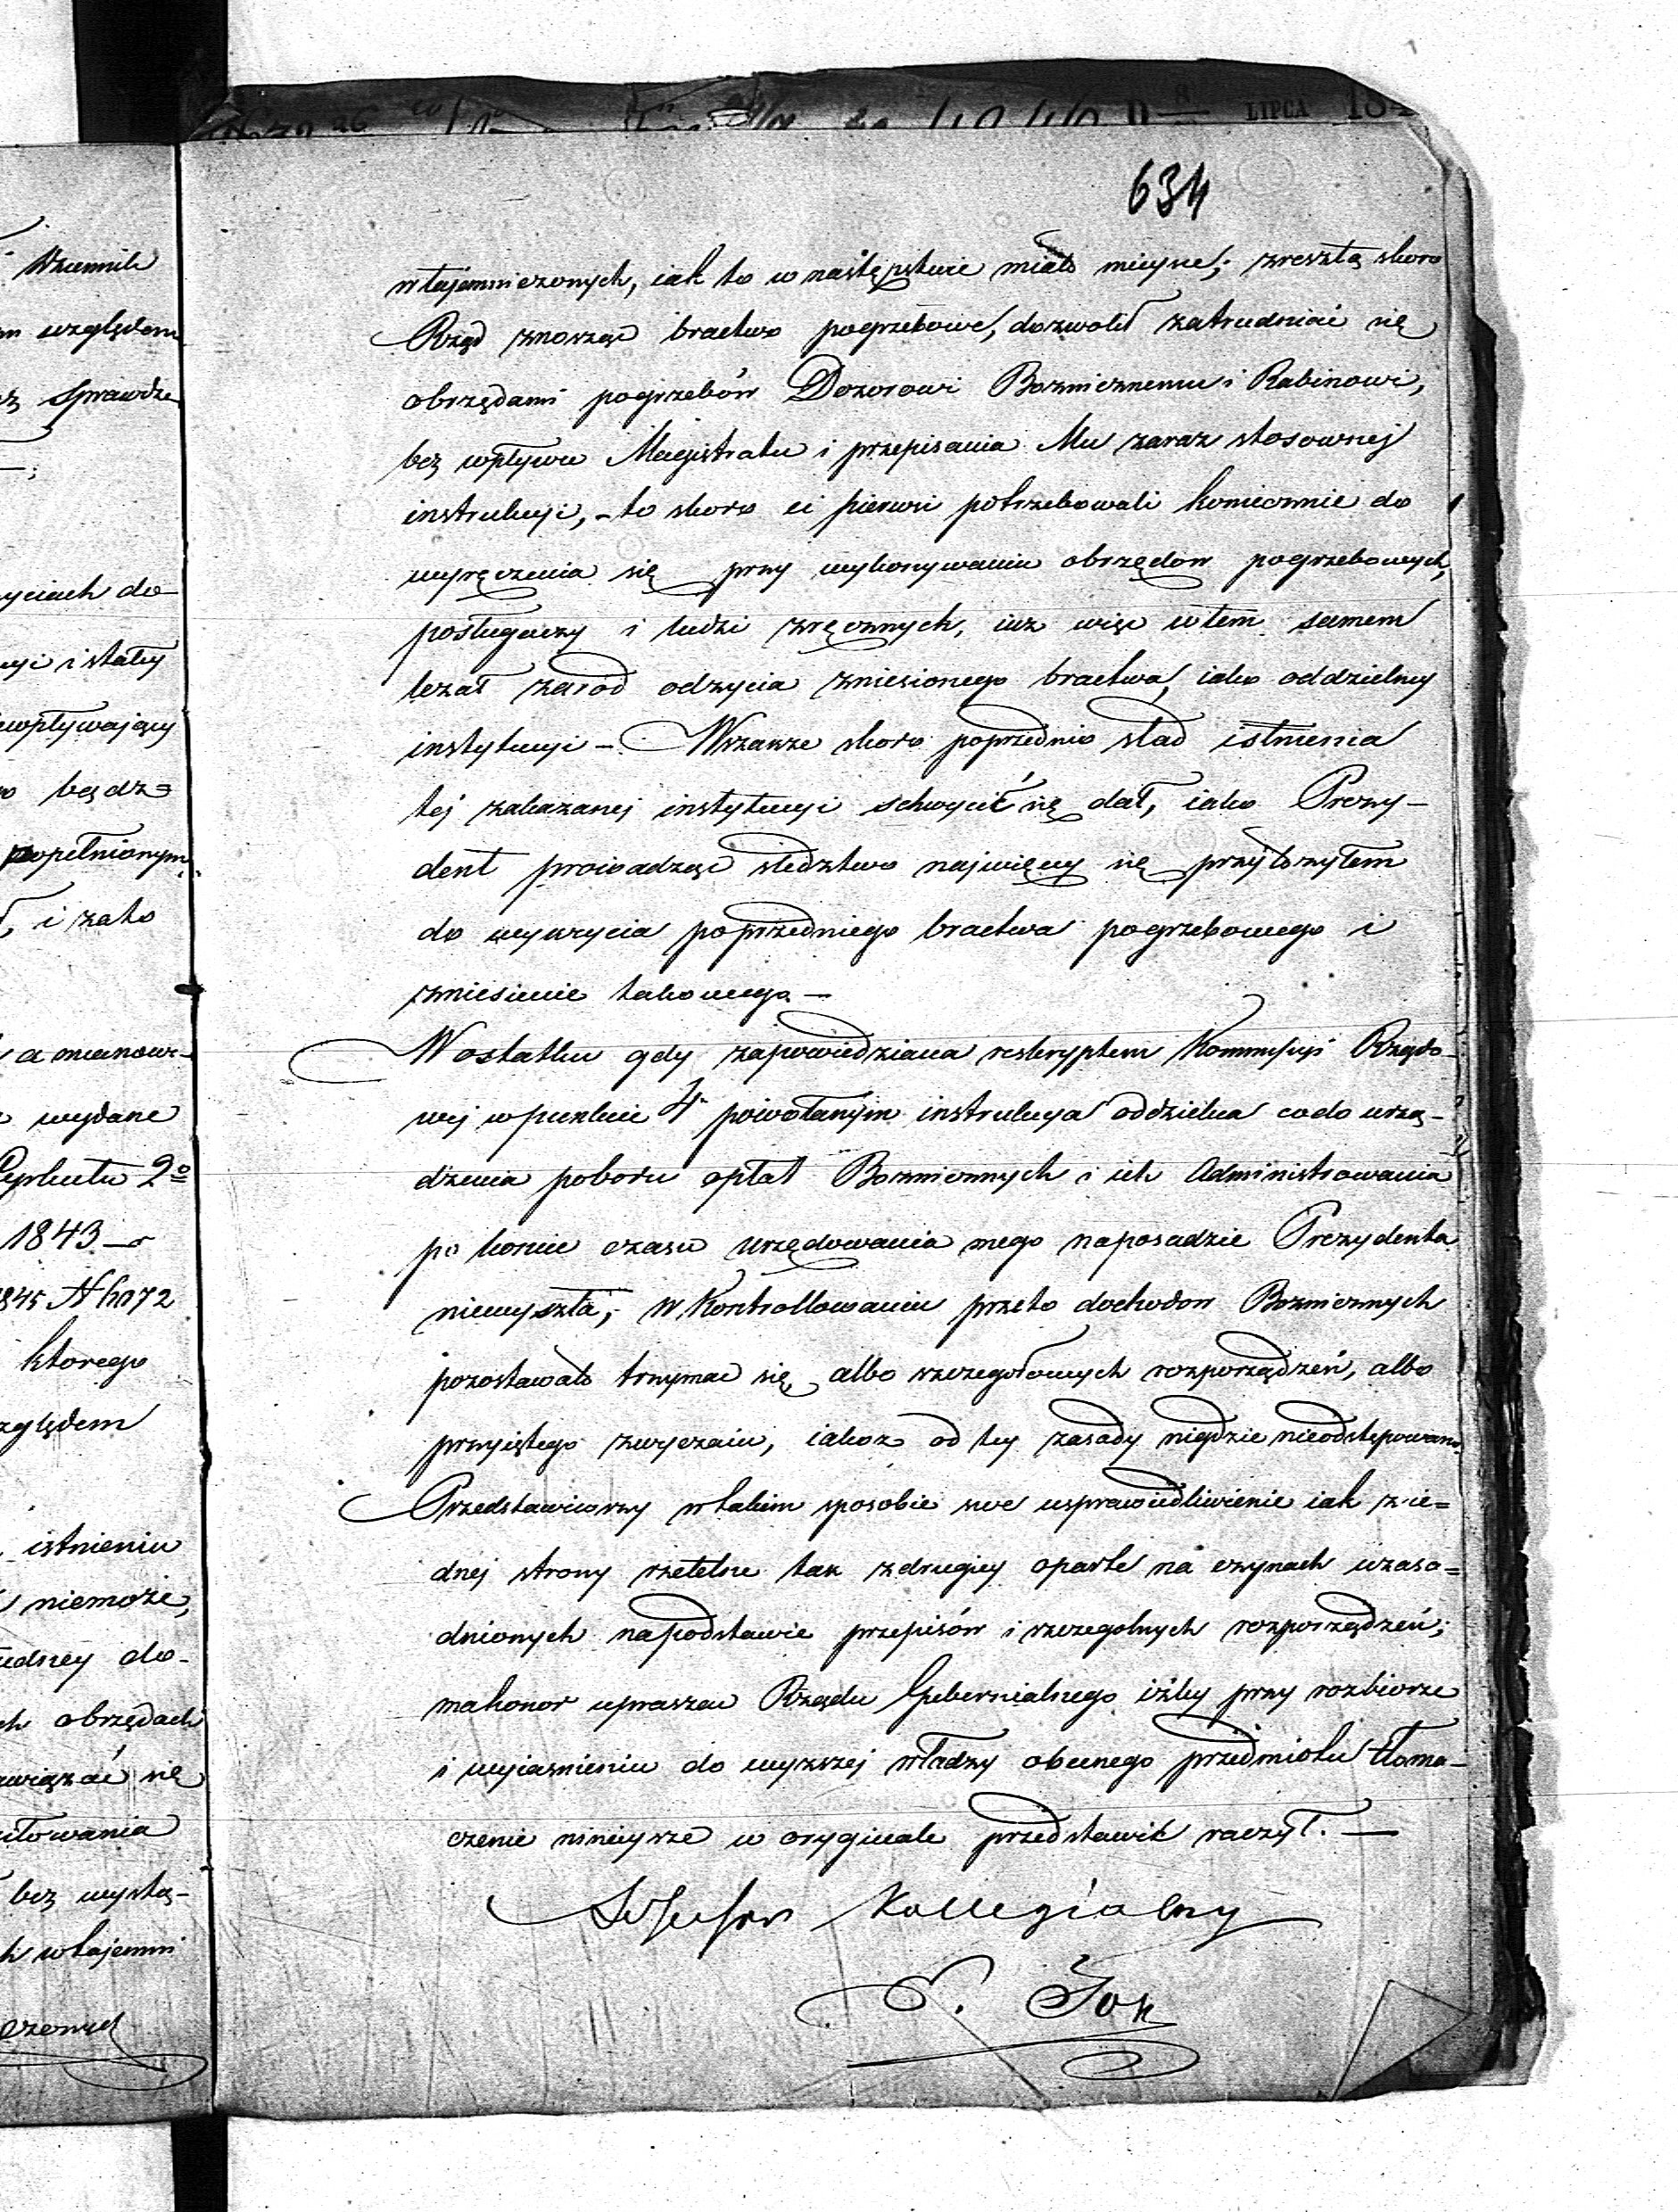 LIPCA 184
634
wtajemniczonych, iak to w następstwie miało mieysce; zresztą skoro
Rząd znosząc bractwo pogrzebowe, dozwolił zatrudniać się
obrzędami pogrzebów Dozorowi Bozniczemu i Rabinowi,
bez wpływu Magistratu i przepisania Mu zaraz stosownej
instrukcyi, - to skoro ci pierwsi potrzebowali koniecznie do
wyręczenia się przy wykonywaniu obrzędow pogrzebowych,
posługaczy i ludzi zręcznych, iuz więc w tem samem
lezał zaród odzycia zniesionego bractwa, iako oddzielney
instytucyi - Wszakze skoro poprzednio slad istnienia
tej zakazanej instytucyi schwycić się dał, iako Prezy-
dent prowadząc sledztwo najwięcey się przyłozyłem
do wykrycia poprzedniego bractwa pogrzebowego i
zniesienie takowego -
W ostatku gdy zapowiedziana reskryptem Kommissyi Rządo-
wej w punkcie 4 powołanym instrukcya oddzielna co do urzą-
dzenia poboru opłat Bozniczych i ich Administrowania
po koniec czasu urzędowania mego na posadzie Prezydenta
niewyszła; w Kontrollowaniu przeto dochodow Bozniczych
pozostawało trzymac się, albo szczegołowych rozporządzeń, albo
przyiętego zwyczaiu, iakoz od tey zasady nigdzie nieodstępowano.
Przedstawiwszy w takim sposobie swe usprawiedliwienie iak z ie=
dnej strony rzetelne tak z drugiey oparte na czynach uzasa=
dnionych na podstawie przepisów i szczegolnych rozporządzeń;
ma honor upraszać Rządu Gubernialnego iżby przy rozbiorze
i wyiasnieniu do wyzszej władzy obecnego przedmiotu tłoma-
czenie ninieysze w oryginale przedstawić raczył. -
Assessor Kollegialny
Dziennik
względem
sprawdze
yciach do-
i stałey
wpływaiący
bądz=
popełnionym
i zato
a mianowi-
wydane
Reskriptu 2o
1843
1845 N
ktorego
względem
istnieniu
niemoże,
do-
obrzędach
się
bez wystą-
w tajemni